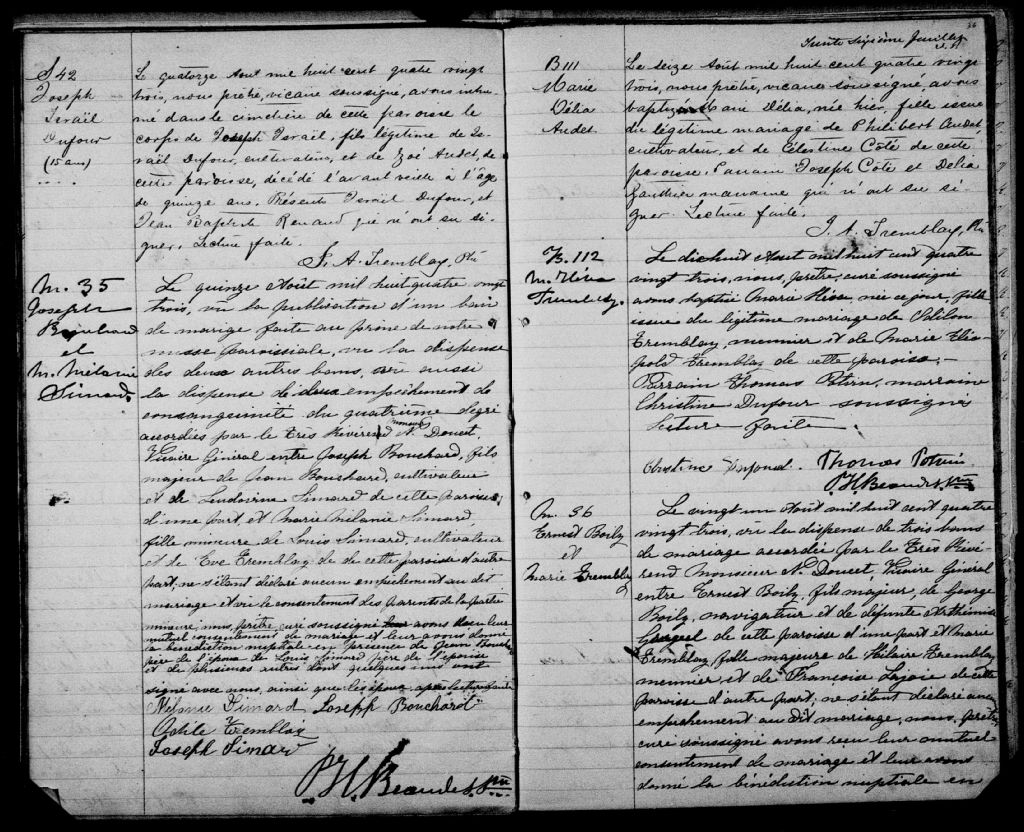 S 42
Joseph
Israël
Dufour
(15 ans)
Le quatorze Aout mil huit cent quatre vingt
trois, nous prêtre, vicaire soussigné, avons inhu-
mé dans le cimetière de cette paroisse le
corps de Joseph Israël, fils légitime de Is-
raël Dufour, cultivateur, et de Zoé Audet, de
cette paroisse, décédé l'avant veille à l'age
de quinze ans. Présents Israël Dufour, et
Jean Baptiste Renaud qui n'ont su si-
gner. Lecture faite.
J. A. Tremblay, Ptr
M. 35
Joseph
Bouchard
et
M. Mélanie
Simard
Le quinze Aôut mil huit quatre vingt
trois, vu la publication d'un ban
de mariage faite au prône de notre
messe paroissiale, vu la dispense
des deux autres bans, vu aussi
la dispense de deux empêchement de
consanguinité du quatrième dégré
accordées par le Très Révérend Monsieur N. Doucet,
Vicaire Général entre Joseph Bouchard, fils
majeur de Jean Bouchard, cultivateur
et de Simard de cette paroisse,
d'une part, et Marie Mélanie Simard,
fille mineure de Louis Simard, cultivateur
et de Eve Tremblay de de cette paroisse d'autre
part; ne s'étant déclaré aucun empêchement au dit
mariage et vu le consentement des parents de la partie
mineure, nous, prêtre, curé soussigné avons reçu leur
mutuel consentement de mariage et leur avons donné
la bénédiction nuptiale en présence de Jean Bouchard
père de l'époux de Louis Simard père de l'épouse
et de plusieurs autres dont quelques uns ont
signé avec nous, ainsi que les époux après lecture faite
Mélanie Simard Joseph Bouchard
Odile Tremblay
Joseph Simard
P. H. Beaudet, Ptre
36
Trente sixième feuillet
B 111
Marie
Délia
Audet
Le seize Août mil huit cent quatre vingt
trois, nous prêtre, vicaire soussigné, avons
baptisé Marie Délia, née hier, fille issue
du légitime mariage de Philibert Audet
cultivateur, et de Célestine Coté de cette
paroisse. Parrain Joseph Coté et Délia
Gauthier marraine qui n'ont su si-
gner. Lecture faite.
J. A. Tremblay, Ptr
B. 112
M. Héva
Tremblay
Le dichuit Aout mil huit cent quatre
vingt trois, nous, prêtre, curé soussigné
avons baptisé Marie Héva, née ce jour, fille
issue du légitime mariage de Odilon
Tremblay, meunier et de Marie Léo-
pold Tremblay de cette paroisse.
Parrain Thomas Potvin, marraine
Christine Dufour soussignés
Lecture faite.
Christine Dufour. Thomas Potvin
P. H. Beaudet, Ptre
M. 36
Ernest Boily
et
Marie Tremblay
Le vingt un Aout mil huit cent quatre
vingt trois, vu le dispense de trois bans
de mariage accordée par le Très Révé-
rend Monsieur N. Doucet, Vicaire Général
entre Ernest Boily, fils majeur, de George
Boily, navigateur et de défunte Arthémise
de cette paroisse d'une part et Marie
Tremblay, fille majeure de Hilaire Tremblay
meunier et de Françoise Lajoie de cette
paroisse d'autre part; ne s'étant déclaré aucun
empêchement au dit mariage, nous, prêtre,
curé soussigné avons reçu leur mutuel
consentement de mariage et leur avons
donné la bénédiction nuptiale en